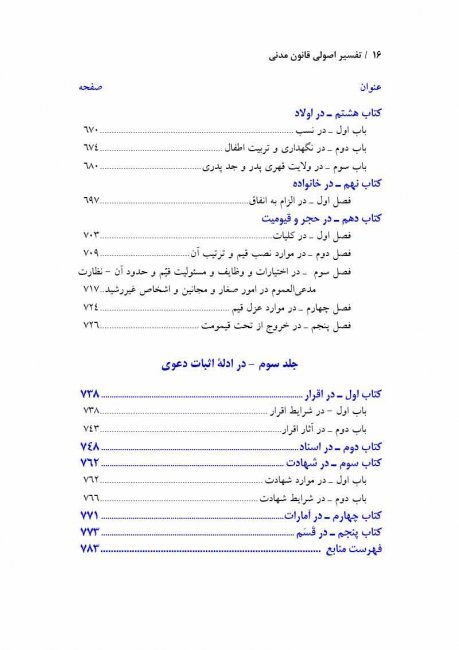 ۱۶ / تفسیر اصولی قانون مدنی
عنوان صفحه
کتاب هشتم ـ در اولاد
باب اول ـ در نسب ........ ۶۷۰
باب دوم ـ در نگهداری و تربیت اطفال ........ ۶۷۴
باب سوم ـ در ولایت قهری پدر و جد پدری ........ ۶۸۰
کتاب نهم ـ در خانواده
فصل اول ـ در الزام به انفاق ........ ۶۹۷
کتاب دهم ـ در حجر و قیومیت
فصل اول ـ در کلیات ........ ۷۰۳
فصل دوم ـ در موارد نصب قیم و ترتیب آن ........ ۷۰۹
فصل سوم ـ در اختیارات و وظایف و مسئولیت قیّم و حدود آن - نظارت
مدعی‌العموم در امور صغار و مجانین و اشخاص غیررشید.. ۷۱۷
فصل چهارم ـ در موارد عزل قیم ........ ۷۲۴
فصل پنجم ـ در خروج از تحت قیمومت ........ ۷۲۶
جلد سوم - در ادلهٔ اثبات دعوی
کتاب اول ـ در اقرار ........ ۷۳۸
باب اول - در شرایط اقرار ........ ۷۳۸
باب دوم ـ در آثار اقرار ........ ۷۴۳
کتاب دوم ـ در اسناد ........ ۷۴۸
کتاب سوم ـ در شهادت ........ ۷۶۲
باب اول ـ در موارد شهادت ........ ۷۶۲
باب دوم ـ در شرایط شهادت ........ ۷۶۶
کتاب چهارم ـ در اَمارات ........ ۷۷۱
کتاب پنجم ـ در قَسَم ........ ۷۷۳
فهرست منابع ........ ۷۸۳